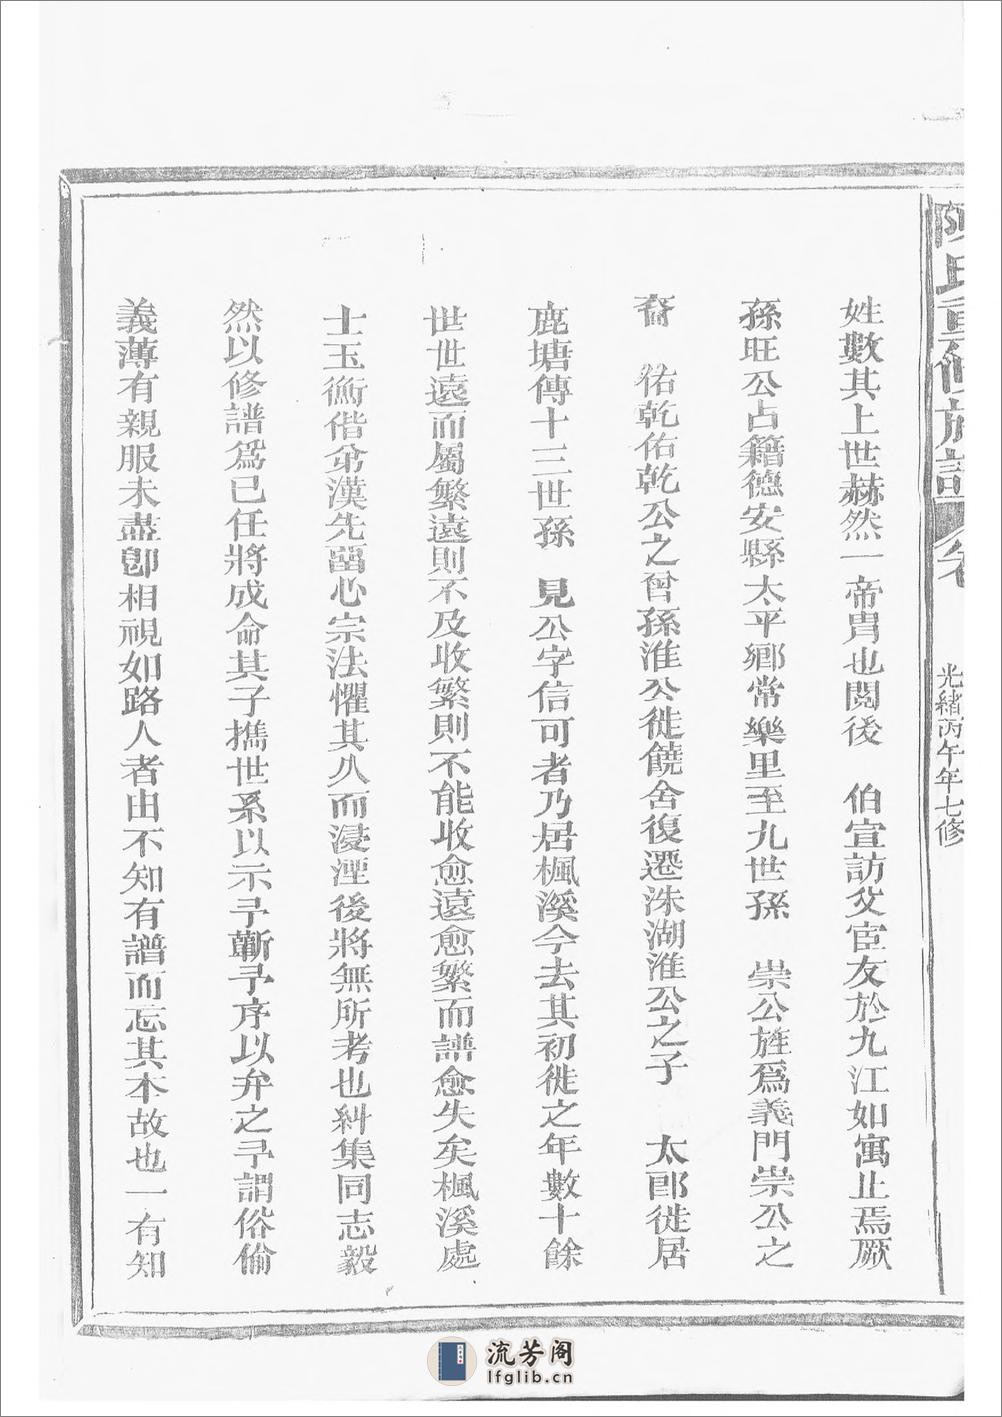 陳氏重修族譜 卷
光緒丙午年七修
姓數其上世赫然一帝胄也閱後 伯宣訪父宦友於九江如寓止焉厥
孫旺公占籍德安縣太平鄉常樂里至九世孫 崇公旌爲義門崇公之
裔 佑乾佑乾公之曾孫淮公徙饒舍復遷洙湖淮公之子 太郎徙居
鹿塘傳十三世孫 見公字信可者乃居楓溪今去其初徙之年數十餘
世世遠而屬繁遠則不及收繁則不能收愈遠愈繁而譜愈失矣楓溪處
士玉衡偕弟漢先畱心宗法懼其久而浸湮後將無所考也糾集同志毅
然以修譜爲已任將成命其子攜世系以示予蘄予序以弁之予謂俗偷
義薄有親服未盡卽相視如路人者由不知有譜而忘其本故也一有知
流芳阁
lfglib.cn